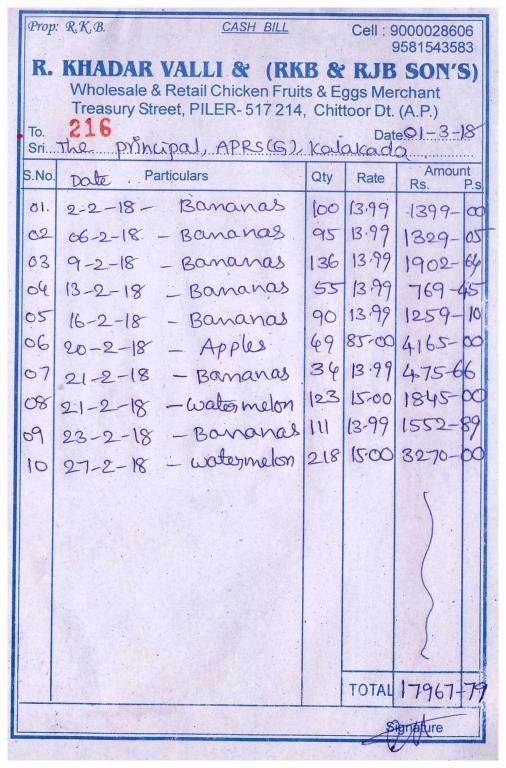 Prop: R.K.B. CASH BILL Cell : 9000028606
9581543583
R. KHADAR VALLI & (RKB & RJB SON'S)
Wholesale & Retail Chicken Fruits & Eggs Merchant
Treasury Street, PILER- 517 214, Chittoor Dt. (A.P.)
To. 216 Date 01-3-18
Sri. The principal, APRS(G), Kalakada
S.No. Date Particulars Qty Rate Amount Rs. P.s.
01. 2-2-18 - Bananas 100 13.99 1399-00
02 06-2-18 - Bananas 95 13.99 1329-05
03 9-2-18 - Bananas 136 13.99 1902-64
04 13-2-18 - Bananas 55 13.99 769-45
05 16-2-18 - Bananas 90 13.99 1259-10
06 20-2-18 - Apples 49 85-00 4165-00
07 21-2-18 - Bananas 34 13.99 475-66
08 21-2-18 - watermelon 123 15.00 1845-00
09 23-2-18 - Bananas 111 13.99 1552-89
10 27-2-18 - watermelon 218 15.00 3270-00
TOTAL 17967-79
Signature